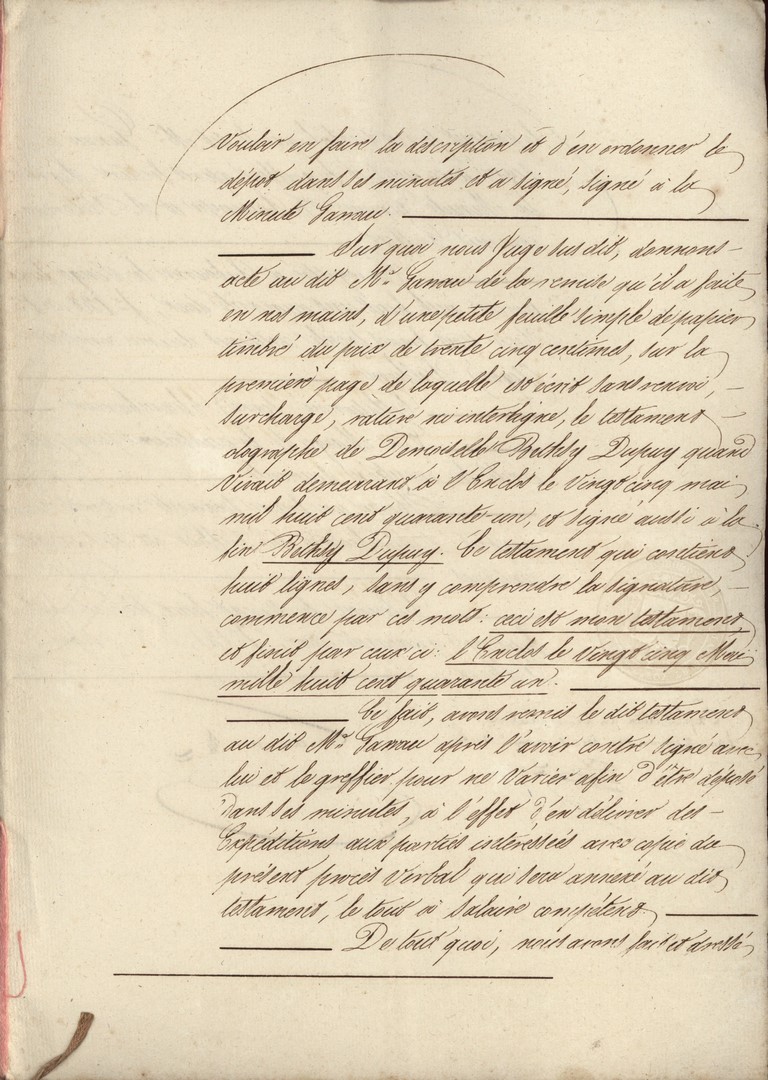 Vouloir en faire la description et d'en ordonner le
dépot, dans ses minutes et a signé, signé à la
Minute Ganau.
Sur quoi nous Juge susdit, donnons
acte au dit Me. Ganau de la remise qu'il a faite
en nos mains, d'une petite feuille simple de papier
timbré du prix de trente cinq centimes, sur la
première page de laquelle est écrit sans renvoi,
surcharge, rature ni interligne, le testament
olographe de Demoiselle Bethsy Dupuy quand
Vivait demeurant à l'Enclos le Vingt cinq mai
mil huit cent quarante-un, et signé aussi à la
fin Bethsy Dupuy. Ce testament qui contient
huit lignes, sans y comprendre la signature,
commence par ces mots: ceci est mon testament
et finit par ceux ci: l'Enclos le Vingt cinq Mai
mille huit cent quarante un.
Ce fait, avons remis le dit testament
au dit Me. Ganau après l'avoir contre signé avec
lui et le greffier pour ne Varier afin d'être déposé
dans ses minutes, à l'effet d'en délivrer des
Expéditions aux parties intéressées avec copie du
présent procès Verbal qui sera annexé au dit
testament, le tout à Salaire compétent
De tout quoi, nous avons fait et dressé